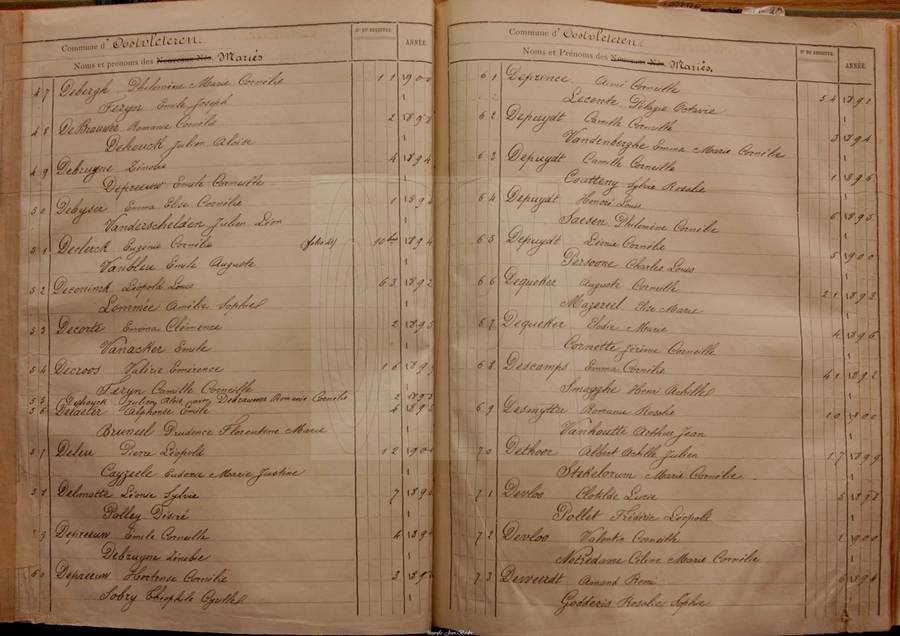 Commune d' Oostvleteren.
Noms et prénoms des Nouveaux-Nés. Mariés
Nº DU REGISTRE. ANNÉE.
47 Debergh Philomène Marie Cornélie 11 1900
Feryn Emile Joseph
48 De Brauwer Romanie Cornélie 2 1898
Dehouck Julien Aloïse
49 Debruyne Zénobie 4 1894
Depreeuw Emile Corneille
50 Debyser Emma Elise Cornélie 1
Vanderschelden Julien Léon
51 Declerck Eugénie Cornélie 10 bis 1894
Vanbleu Emile Auguste
52 Deconinck Léopold Louis 63 1892
Lommée Amélie Sophie
53 Decorte Emma Clémence 2 1895
Vanacker Emile
54 Decroos Valérie Emérence 16
Feryn Camille Corneille
55 Dehouck Julien Aloïs avec Debrauwer Romanie Cornélie 2 1898
56 Delaeter Alphonse Emile 4
Bruneel Prudence Florentine Marie
57 Deleu Pierre Léopold 12 1900
Cayzeele Eudoxie Marie Justine
58 Delmotte Léonie Sylvie 7
Polley Désiré
59 Depreeuw Emile Corneille 4 1894
Debruyne Zénobie
60 Depreeuw Hortense Cornélie 3
Sobry Théophile Cyrille
Commune d' Oostvleteren.
Noms et Prénoms des Nouveaux-Nés. Mariés.
Nº DU REGISTRE. ANNÉE.
61 Deprince Aimé Corneille 54 1891
Leconte Pélagie Octavie
62 Depuydt Camille Corneille 3 1894
Vandenberghe Emma Marie Cornélie
63 Depuydt Camille Corneille 1 1896
Coutteny Sylvie Rosalie
64 Depuydt Honoré Louis 6 1895
Saesen Philomène Cornélie
65 Depuydt Léonie Cornélie 5 1900
Persoone Charles Louis
66 Dequeker Auguste Corneille 21 1893
Mazereel Elise Marie
67 Dequeker Elodie Marie 4 1896
Cornette Jérôme Corneille
68 Descamps Emma Cornélie 41 1892
Smagghe Henri Achille
69 Desmyttre Romanie Rosalie 10 1900
Vanhoutte Arthur Jean
70 Dethoor Albert Achille Julien 17 1899
Stekelorum Marie Cornélie
71 Devloo Clotilde Lucie 5 1898
Pollet Frédéric Léopold
72 Devloo Valentin Corneille 1 1900
Notredame Céline Marie Cornélie
73 Deweerdt Amand Remi 6 1894
Godderis Rosalie Sophie